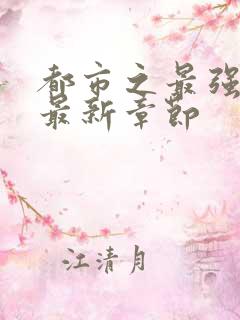 都市之最强
最新章节
江清月